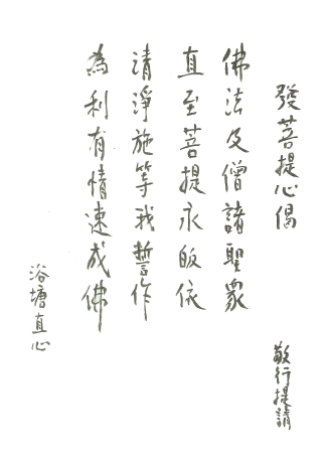 發菩提心偈
敬行提請
佛法及僧諸聖眾
直至菩提永皈依
清淨施等我誓作
為利有情速成佛
浴塘直心